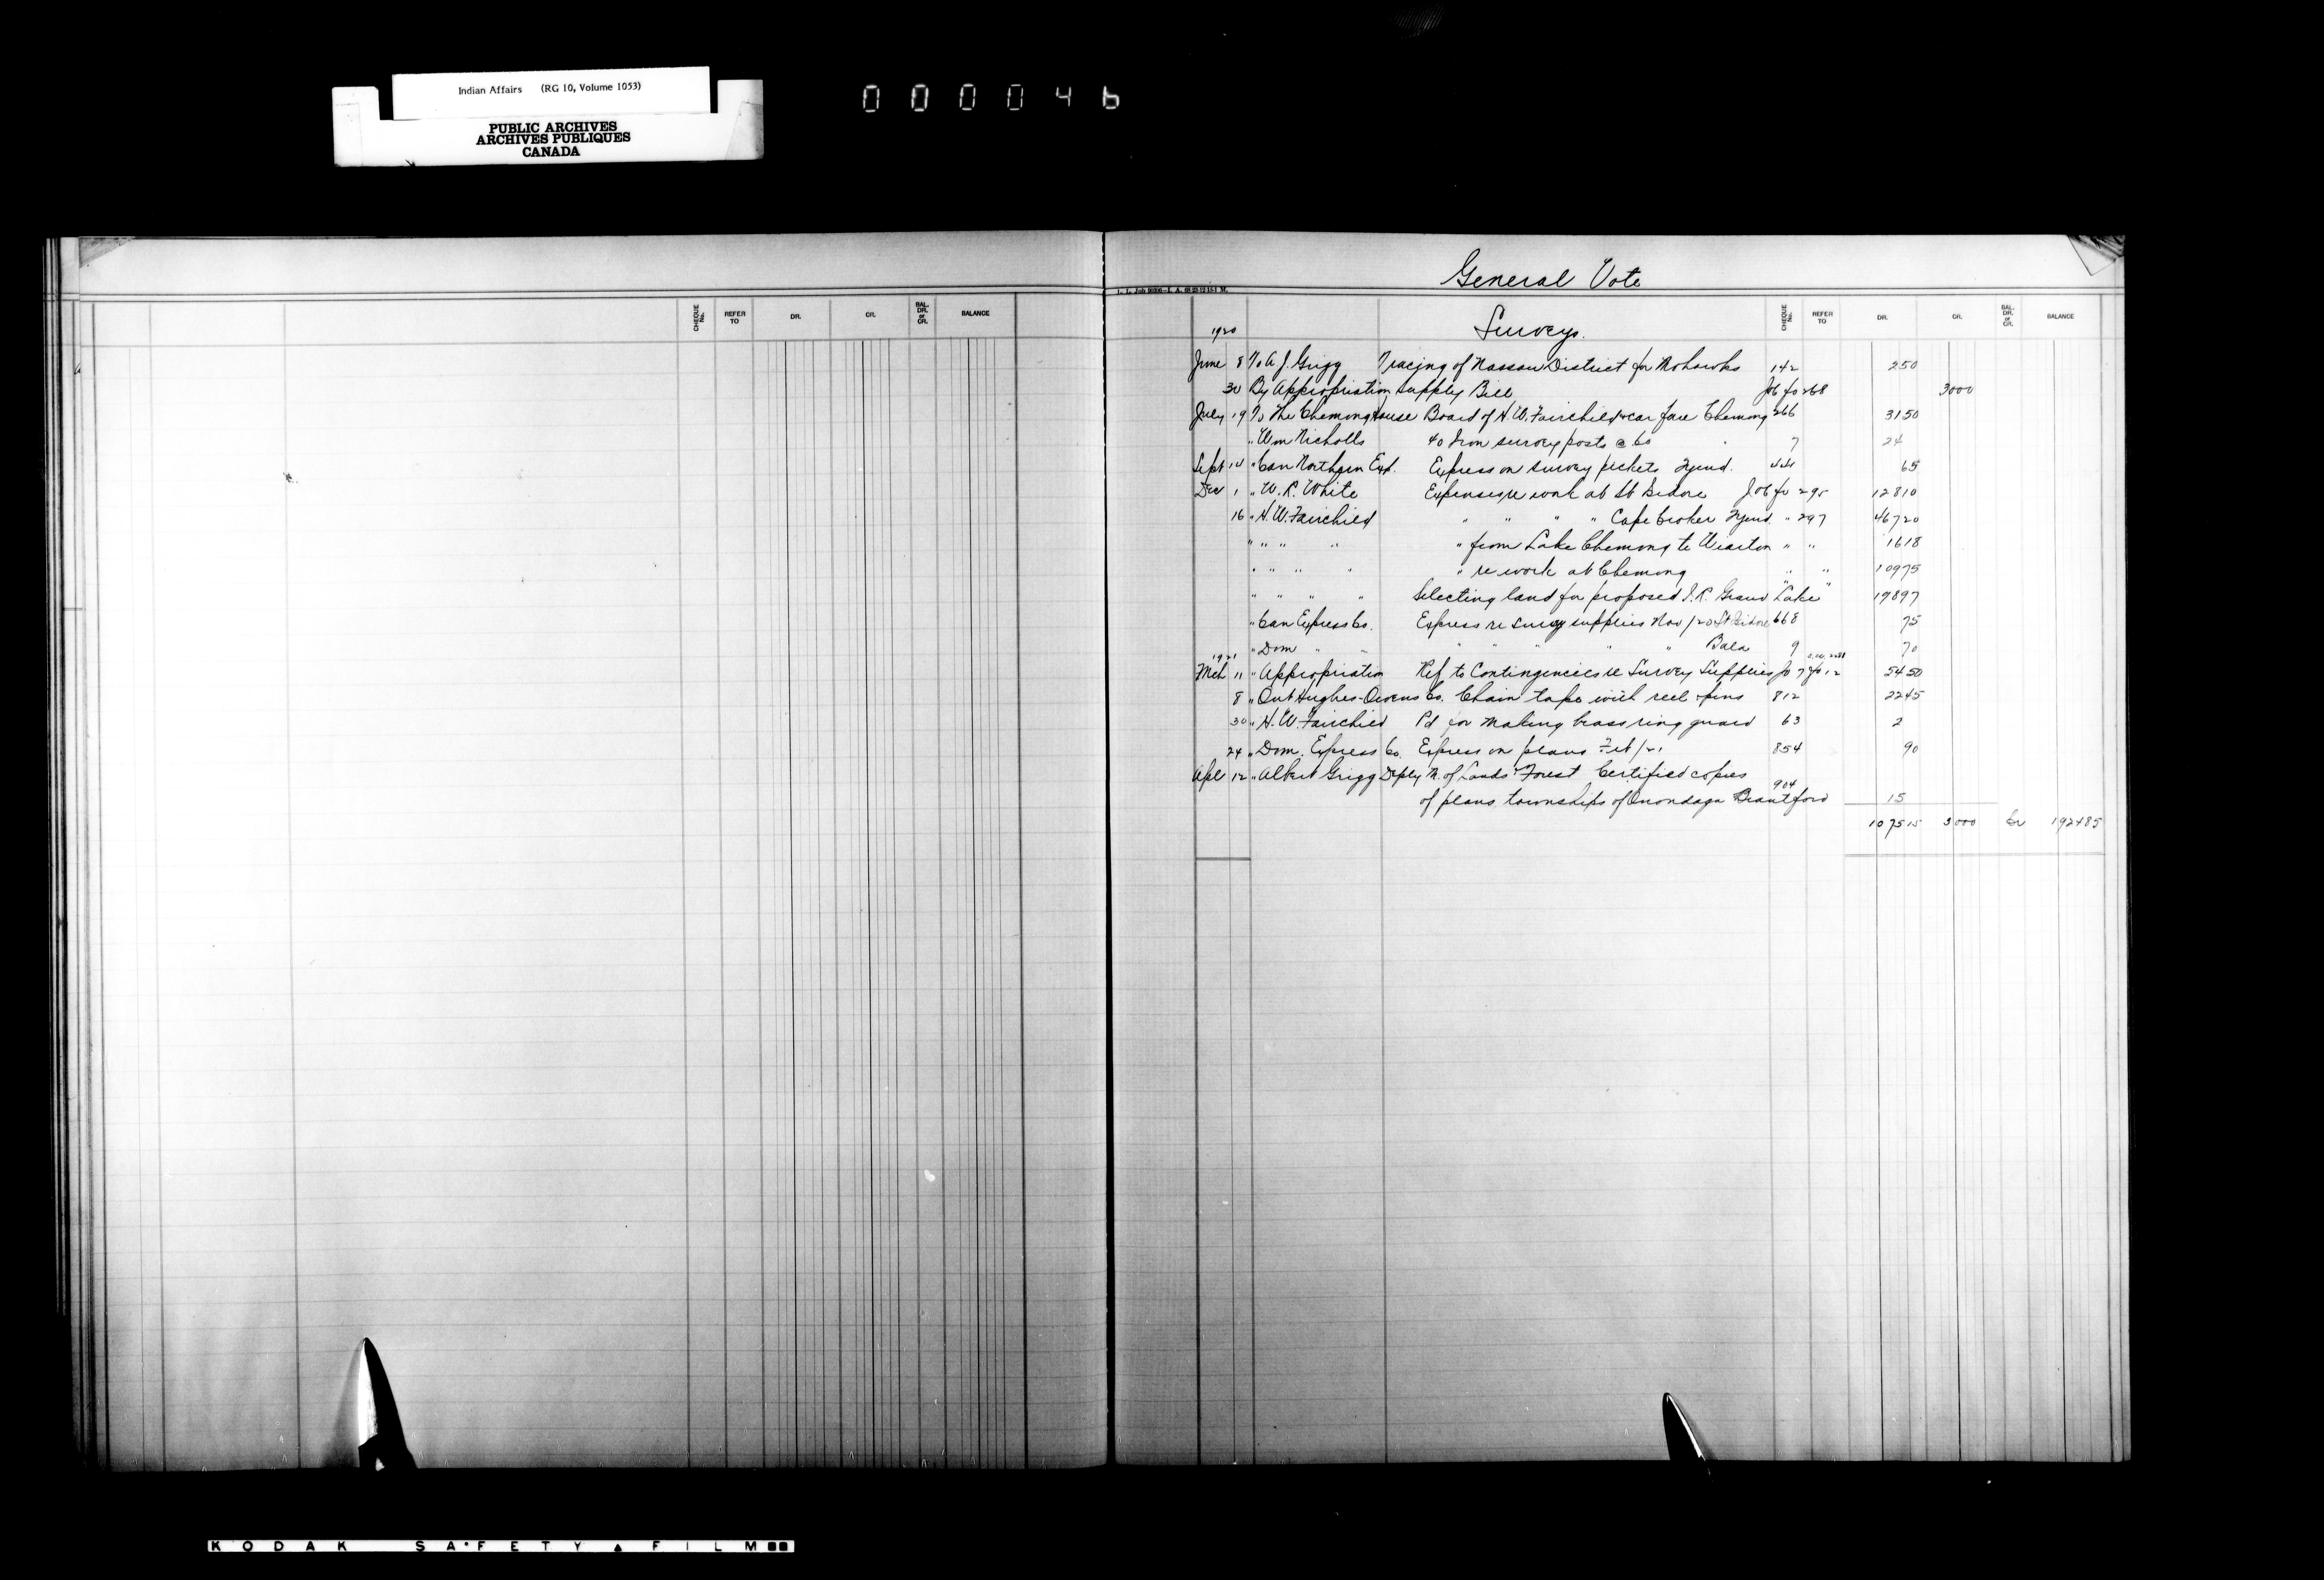 Indian Affairs (RG 10, Volume 1053)
PUBLIC ARCHIVES
ARCHIVES PUBLIQUES
CANADA
000046
General Vote
CHEQUE No. REFER TO DR. CR. BAL. DR. or CR. BALANCE
1920 Surveys. CHEQUE No. REFER TO DR. CR. BAL. DR. or CR. BALANCE
June 8 To A. J. Grigg Tracing of Nassau District for Mohawks 142 250
30 By Appropriation Supply Bill fo 268 3000
July 19 To The Chemong House Board of H. W. Fairchild & car fare Chemong 266 3150
" Wm Nicholls 40 Iron survey posts @ 60 " 7 24
Sept 14 " Can Northern Exp. Express on survey pickets 65
Dec 1 " W. R. White Expenses re work at St Isidore fo 295 12810
16 " H. W. Fairchild " " " " Cape Croker " 297 46720
" " " " " from Lake Chemong to Wiarton " " 1618
" " " " " re work at Chemong " " 10975
" " " " Selecting land for proposed I. R. Grand Lake " " 17897
" Can Express Co. Express re survey supplies Nov/20 St Isidore 668 75
" Dom " " " " " " " Bala 9 70
1921
Mch 11 " Appropriation Ref to Contingencies re Survey Supplies fo 12 5450
8 " Ont Hughes-Owens Co. Chain tape with reel & pins 812 2245
30 " H. W. Fairchild Pd for making brass ring guard 63 2
24 " Dom. Express Co. Express on plans Feb/21 854 90
Apl 12 " Albert Grigg Depty M. of Lands & Forest Certified copies
of plans townships of Onondaga Brantford 904 15
107515 3000 Cr 192485
KODAK SAFETY FILM